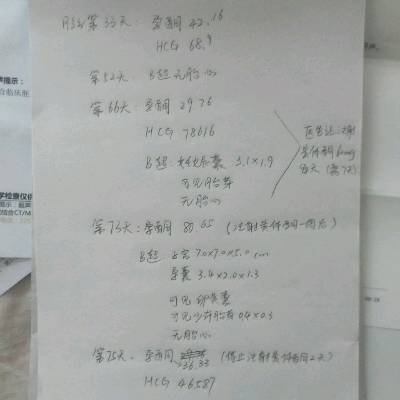 第33天: 孕酮 42.16
HCG 68.9
第52天: B超 无胎心
第66天: 孕酮 29.76
HCG 78616
B超: 孕囊 3.1×1.9
可见胎芽
无胎心
医生注射
黄体酮 60mg
第73天: 孕酮 80.65 (注射黄体酮一周后)
B超: 子宫 7.0×7.0×5.0 cm
孕囊 3.4×2.0×1.3
可见卵黄囊
可见少许胎芽 0.4×0.3
无胎心
第75天: 孕酮 36.33 (停止注射黄体酮2天)
HCG 46587
提示: